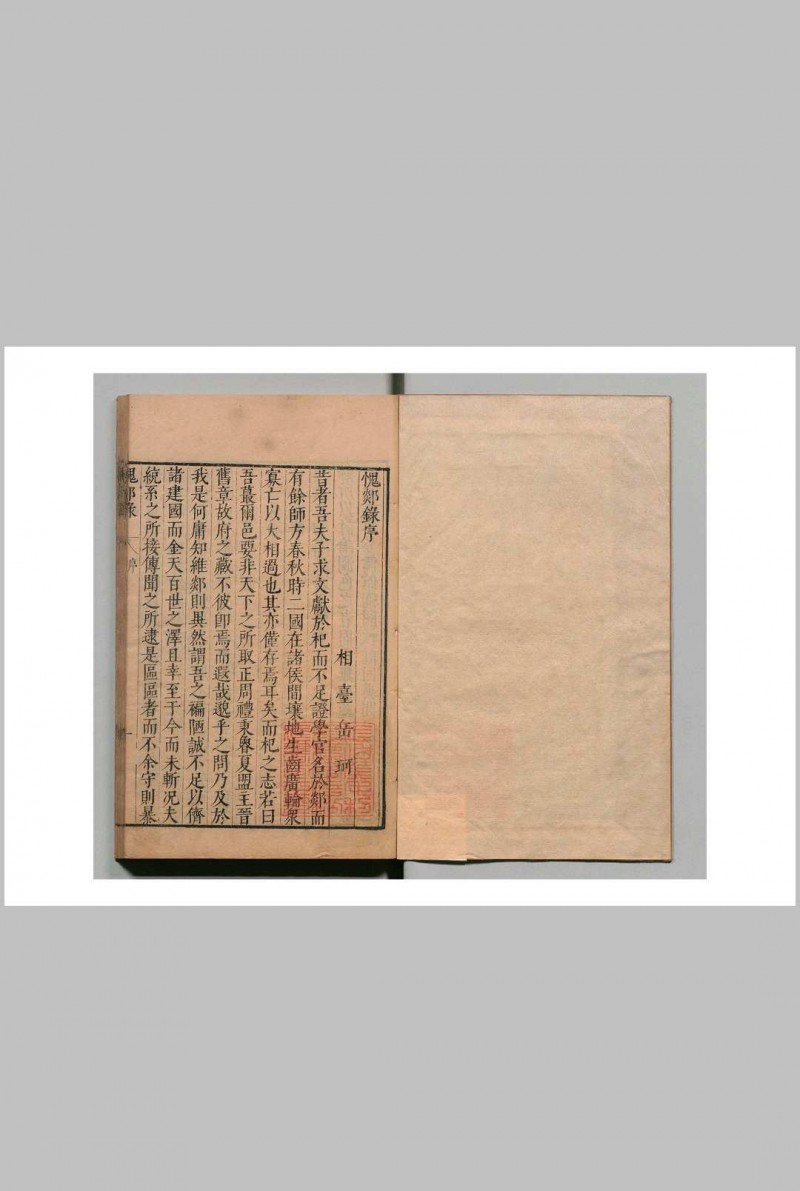 愧郯錄序
相臺岳珂
昔者吾夫子求文獻於杞而不足證學官名於郯而
有餘師方春秋時二國在諸侯間壤地生齒廣輪衆
寡亡以大相過也其亦僅存焉耳矣而杞之志若曰
吾蕞爾邑要非天下之所取正周禮秉魯夏盟主晉
舊章故府之藏不彼卽焉而遐哉邈乎之問乃及於
我是何庸知維郯則異然謂吾之褊陋誠不足以儕
諸建國而金天百世之澤且幸至于今而未斬況夫
統系之所接傳聞之所逮是區區者而不余守則暴
愧郯錄
序
一